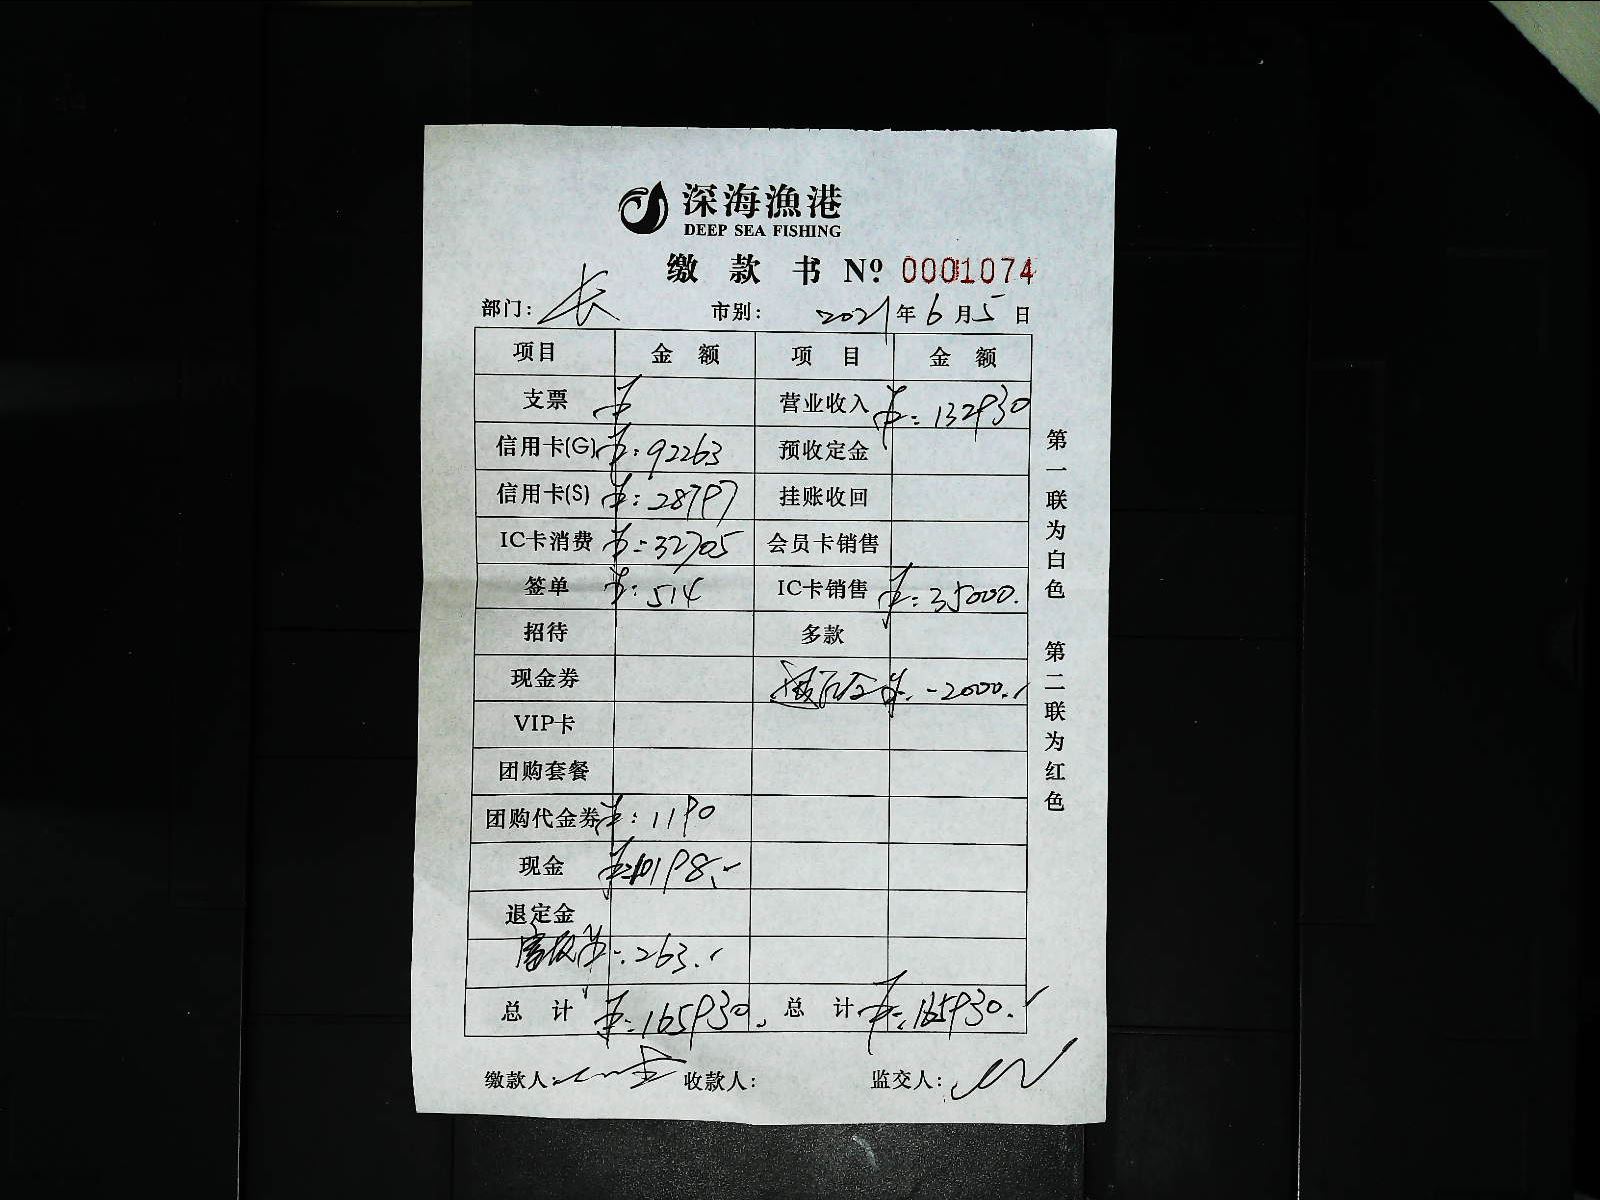 深海漁港
DEEP SEA FISHING
缴款书 Nº 0001074
部门: 长 市别: 2021年6月5日
项目 金额 项目 金额
支票 ¥ 营业收入 ¥:132930
信用卡(G) ¥:92263 预收定金
信用卡(S) ¥:28797 挂账收回
IC卡消费 ¥:32705 会员卡销售
签单 ¥:514 IC卡销售 ¥:35000.
招待 多款
现金券 ¥:-2000.
VIP卡
团购套餐
团购代金券 ¥:1190
现金 ¥:10198.
退定金
¥:263.
总计 ¥:165930. 总计 ¥:165930.
缴款人: 收款人: 监交人:
第一联为白色 第二联为红色